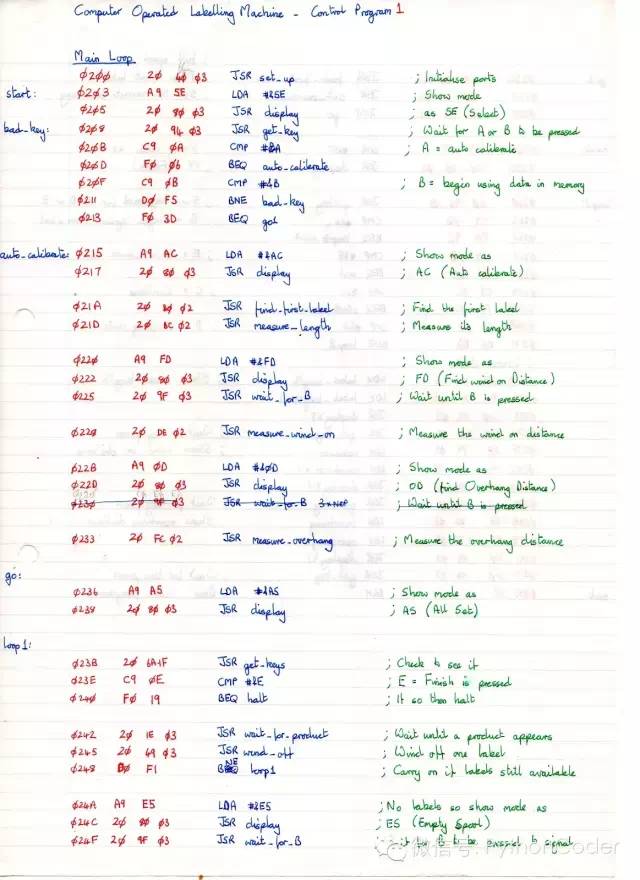 Computer Operated Labelling Machine - Control Program 1
Main Loop
Ø2ØØ 2Ø 4Ø Ø3 JSR set_up ; Initialise ports
start: Ø2Ø3 A9 5E LDA #&5E ; Show mode
Ø2Ø5 2Ø 8Ø Ø3 JSR display ; as SE (Select)
bad_key: Ø2Ø8 2Ø 94 Ø3 JSR get_key ; Wait for A or B to be pressed
Ø2ØB C9 ØA CMP #&A ; A = auto calibrate
Ø2ØD FØ Ø6 BEQ auto_calibrate
Ø2ØF C9 ØB CMP #&B ; B = begin using data in memory
Ø211 DØ F5 BNE bad_key
Ø213 FØ 3D BEQ go1
auto_calibrate: Ø215 A9 AC LDA #&AC ; Show mode as
Ø217 2Ø 8Ø Ø3 JSR display ; AC (Auto calibrate)
Ø21A 2Ø 8Ø Ø2 JSR find_first_label ; Find the first label
Ø21D 2Ø BC Ø2 JSR measure_length ; Measure its length
Ø22Ø A9 FD LDA #&FD ; Show mode as
Ø222 2Ø 8Ø Ø3 JSR display ; FD (Find wind on Distance)
Ø225 2Ø 9F Ø3 JSR wait_for_B ; Wait until B is pressed
Ø228 2Ø DE Ø2 JSR measure_wind_on ; Measure the wind on distance
Ø22B A9 ØD LDA #&ØD ; Show mode as
Ø22D 2Ø 8Ø Ø3 JSR display ; OD (find Overhang Distance)
Ø23Ø 2Ø 9F Ø3 JSR wait_for_B 3xNOP ; Wait until B is pressed
Ø233 2Ø FC Ø2 JSR measure_overhang ; Measure the overhang distance
go:
Ø236 A9 A5 LDA #&A5 ; Show mode as
Ø238 2Ø 8Ø Ø3 JSR display ; AS (All Set)
loop1:
Ø23B 2Ø 6A 1F JSR get_keys ; Check to see if
Ø23E C9 ØE CMP #&E ; E = Finish is pressed
Ø24Ø FØ 19 BEQ halt ; If so then halt
Ø242 2Ø 1E Ø3 JSR wait_for_product ; Wait until a product appears
Ø245 2Ø 49 Ø3 JSR wind_off ; Wind off one label
Ø248 DØ F1 BNE loop1 ; Carry on if labels still available
Ø24A A9 E5 LDA #&E5 ; No labels so show mode as
Ø24C 2Ø 8Ø Ø3 JSR display ; ES (Empty Spool)
Ø24F 2Ø 9F Ø3 JSR wait_for_B for B to be pressed to signal
微信号: PythonCoder